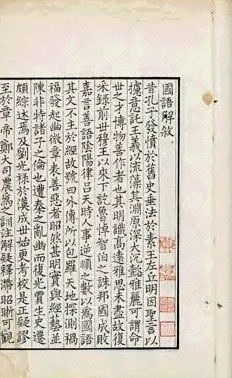 國語解敘
昔孔子發憤於舊史垂法於素王左丘明因聖言以
攄意託王義以流藻其淵原深大沉懿雅麗可謂命
世之才博物善作者也其明識高遠雅思未盡故復
采錄前世穆王以來下訖魯悼智伯之誅邦國成敗
嘉言善語陰陽律呂天時人事逆順之數以為國語
其文不主於經故號曰外傳所以包羅天地探測禍
福發起幽微章表善惡者昭然甚明實與經藝並
陳非特諸子之倫也遭秦之亂幽而復光賈生史遷
頗綜述焉及劉光祿於漢成世始更考校是正疑謬
至於章帝鄭大司農為之訓注解疑釋滯昭晰可觀